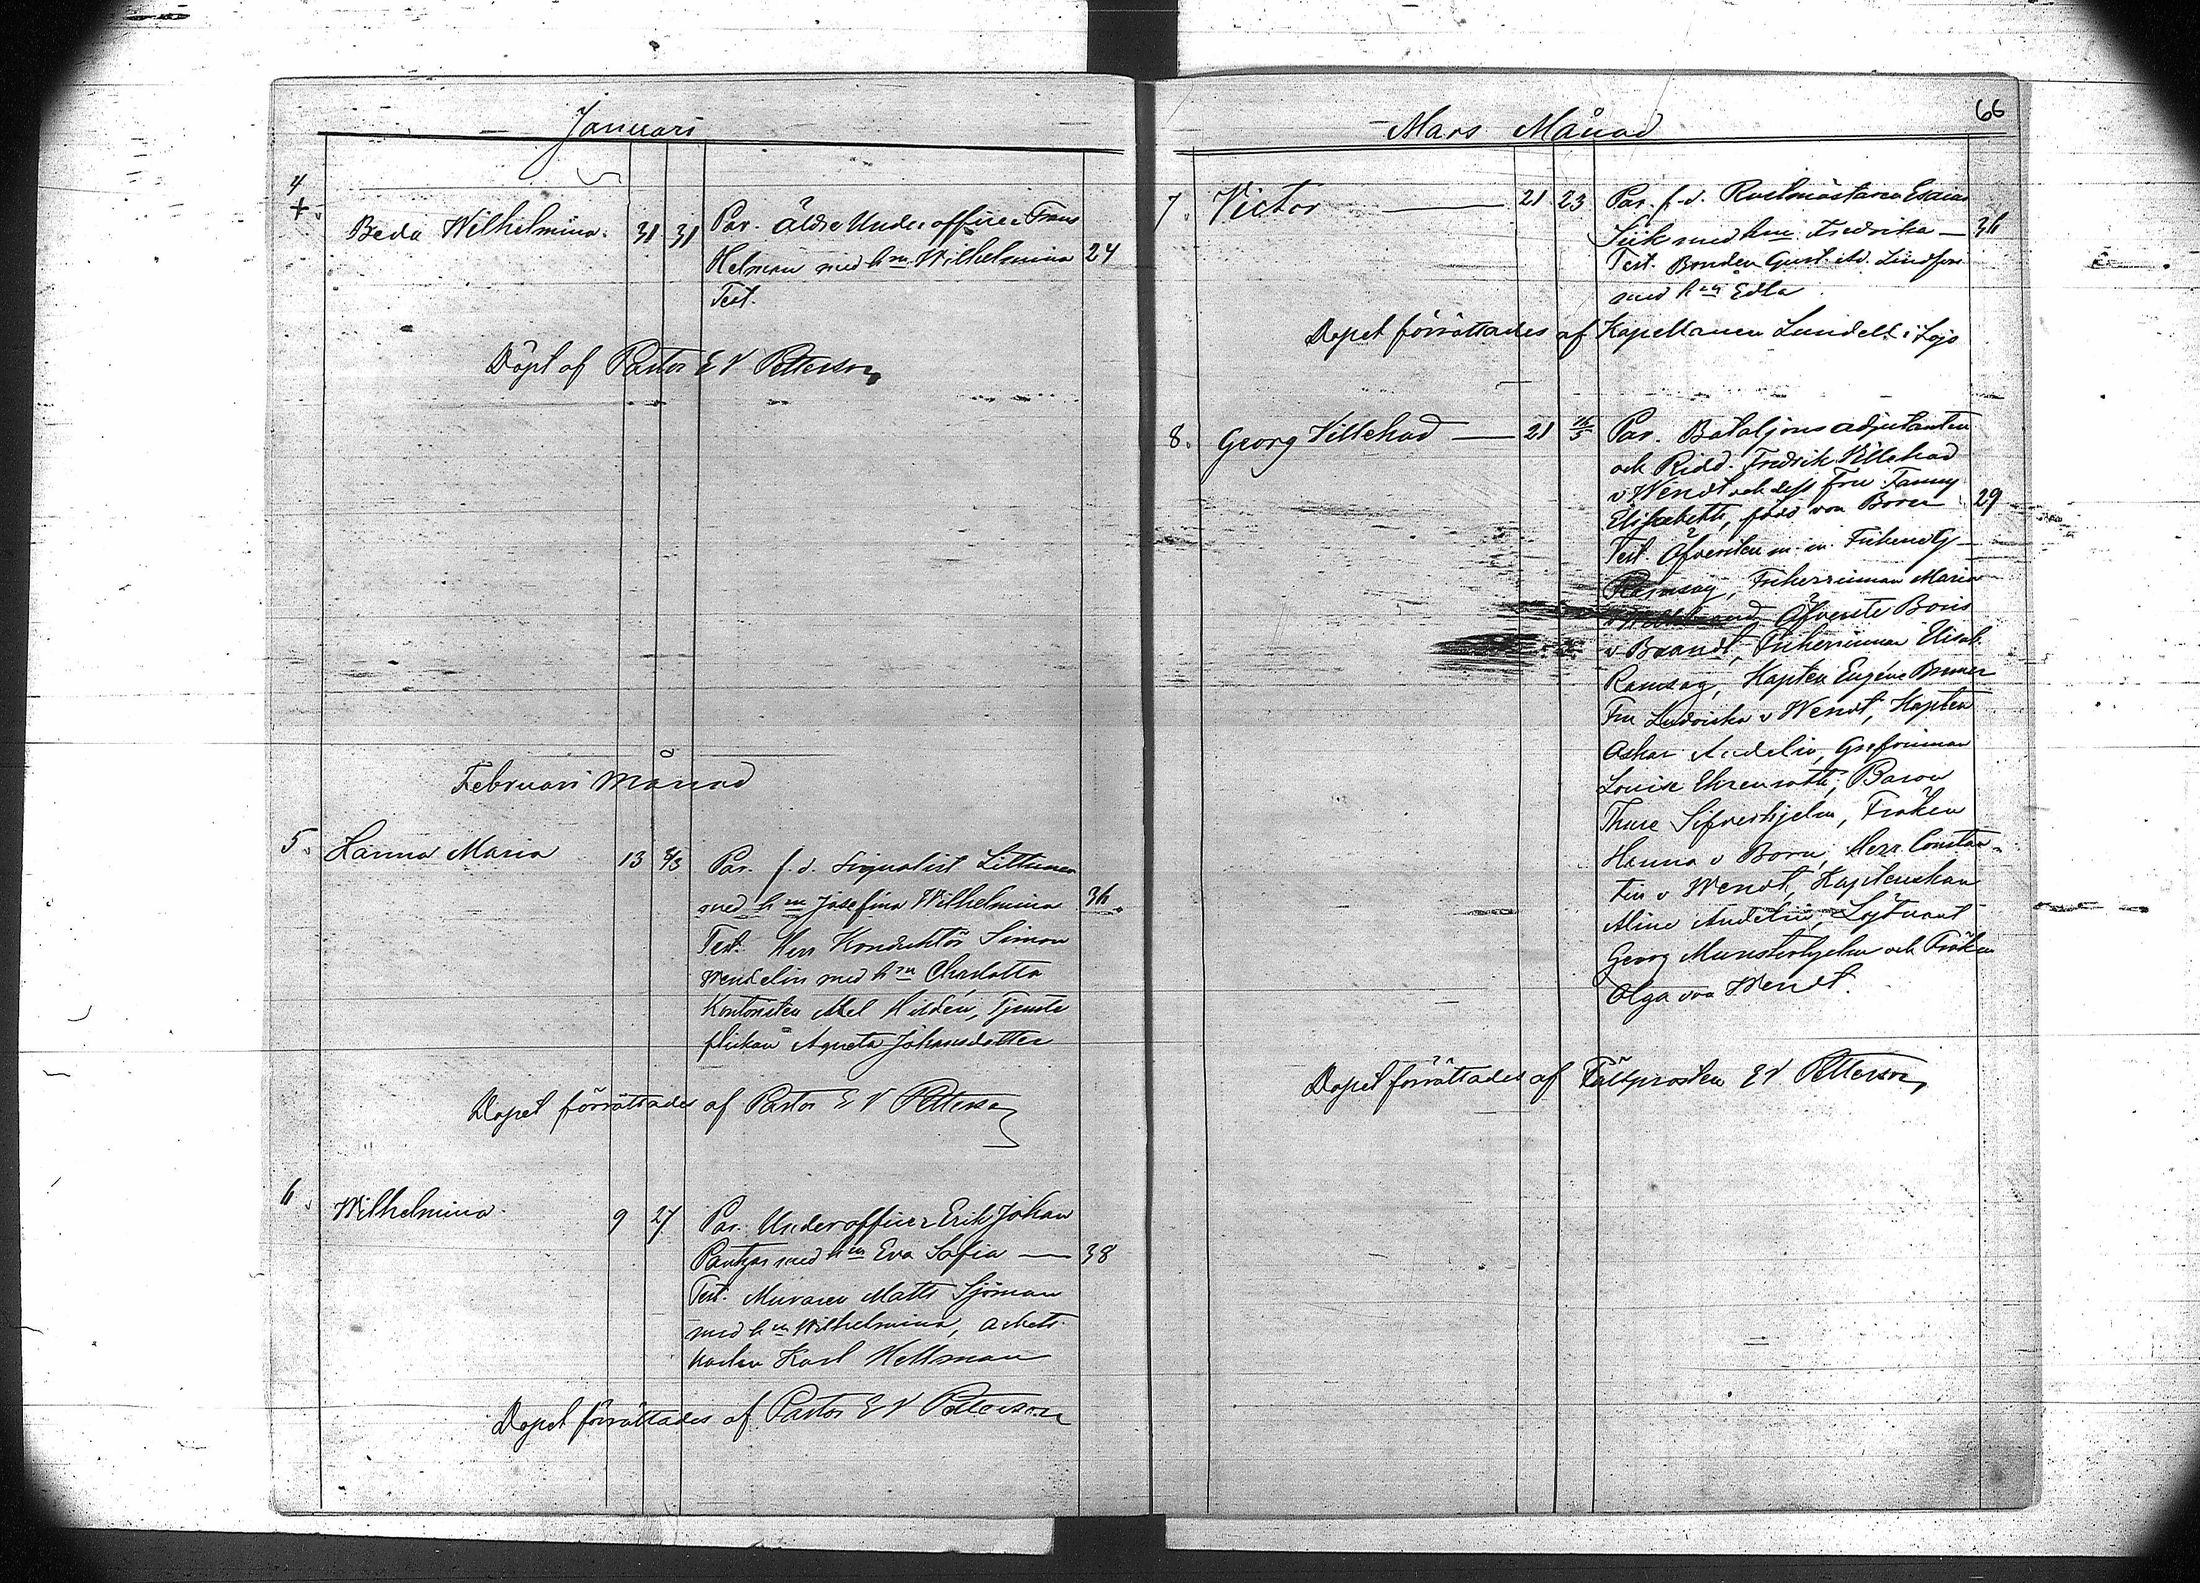 Januari
4 + Beda Wilhelmina. 31 31 Par. Äldre Underofficer Frans
Helman med hu Wilhelmina 24
Test.
Döpt af Pastor E V Petterson
Februari Månad
5. Hanna Maria 13 8/3 Par. f. d. Signalist Littunen
med hu Josefina Wilhelmina 36.
Test. Herr Konduktör Simon
Wendelin med hu Charlotta
Kontoristen Axel Hildén, Tjenste
flickan Agneta Johansdotter
Dopet förrättades af Pastor E V Petterson
6. Wilhelmina. 9 27 Par. Underofficer Erik Johan
med hu Eva Sofia — 38
Test. Muraren Matts Sjöman
med hu Wilhelmina, Arbets
karlen Karl Hellman
Dopet förrättades af Pastor E V Petterson
66
Mars Månad
7. Victor — 21 23 Par. f. d. Rustmästaren Esaias
Siik med hu Fredrika — 36
Test. Bonden Gust. Ad. Lindfors
med hu Edla
Dopet förrättades af Kapellanen Lundell i Lojo
8. Georg Villehad — 21 16/5 Par. Bataljonsadjutanten
och Ridd. Fredrik Villehad
v Wendt och dess Fru Fanny 29
Elisabeth, född von Born
Test. Öfversten m. m. Friherre G
Ramsay, Friherrinnan Maria
Öfverste Boris
v Brandt, Friherrinnan Elisab.
Ramsay, Kapten Eugène
Fru Ludviska v Wendt, Kapten
Oskar Audelin, Grefvinnan
Louise Ehrenroth, Baron
Thure Silfverhjelm, Fröken
Hanna v Born, Herr Constan-
tin v Wendt, Kaptenskan
Aline Audelin, Löjtnant
Georg Munsterhjelm och Fröken
Olga von Wendt.
Dopet förrättades af Fältprosten E V Petterson